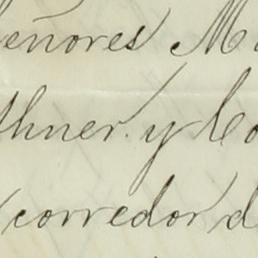 eñores M
thner y Co
corredor d